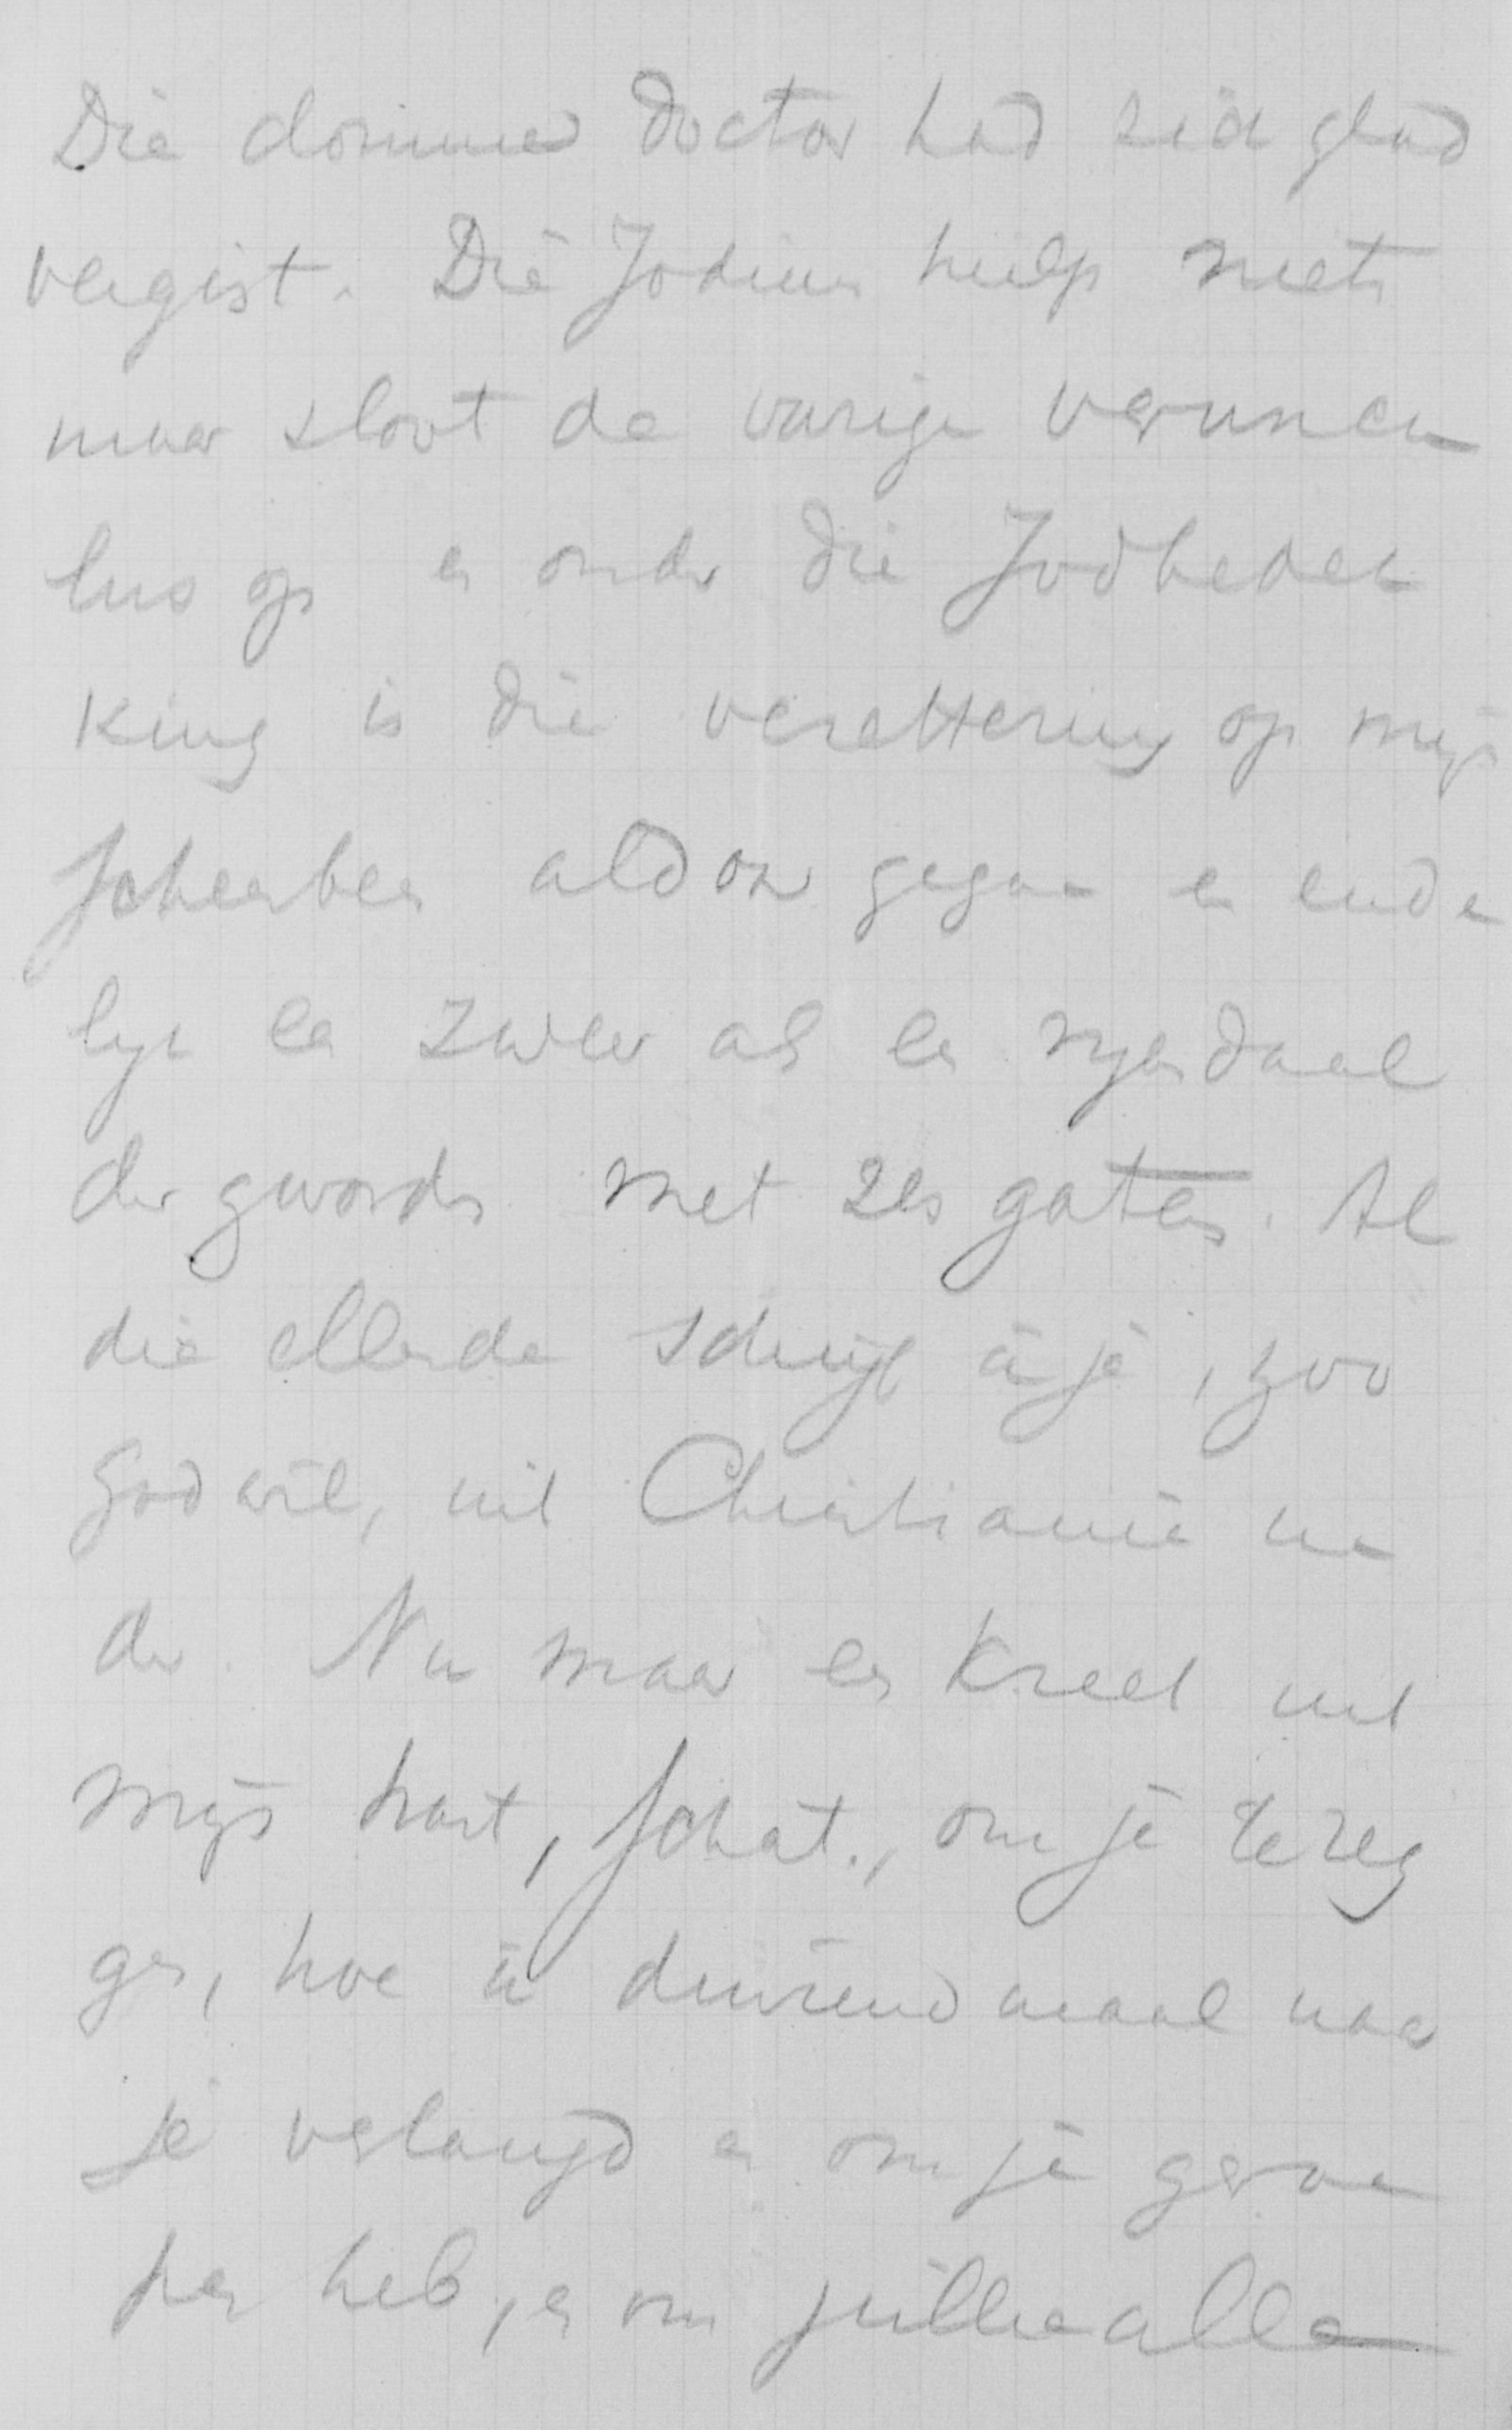 Die domme doctor had zich glad
vergist. Die Jodium hielp niets
maar sloot de vorige vermen
lus op en onder die Jodbedek
king is die verettering op mijn
scheenbeen aldoor gegaan en einde
lijk een zweer als een rijksdaal
der geworden met zes gaten. Al
die ellende schrijf ik je, zoo
God wil, uit Christiania na
der. Nu maar een kreet uit
mijn hart, schat, om je te zeg
gen, hoe ik duizendmaal naar
je verlangd en om je geroe
pen heb, en om jullie alle